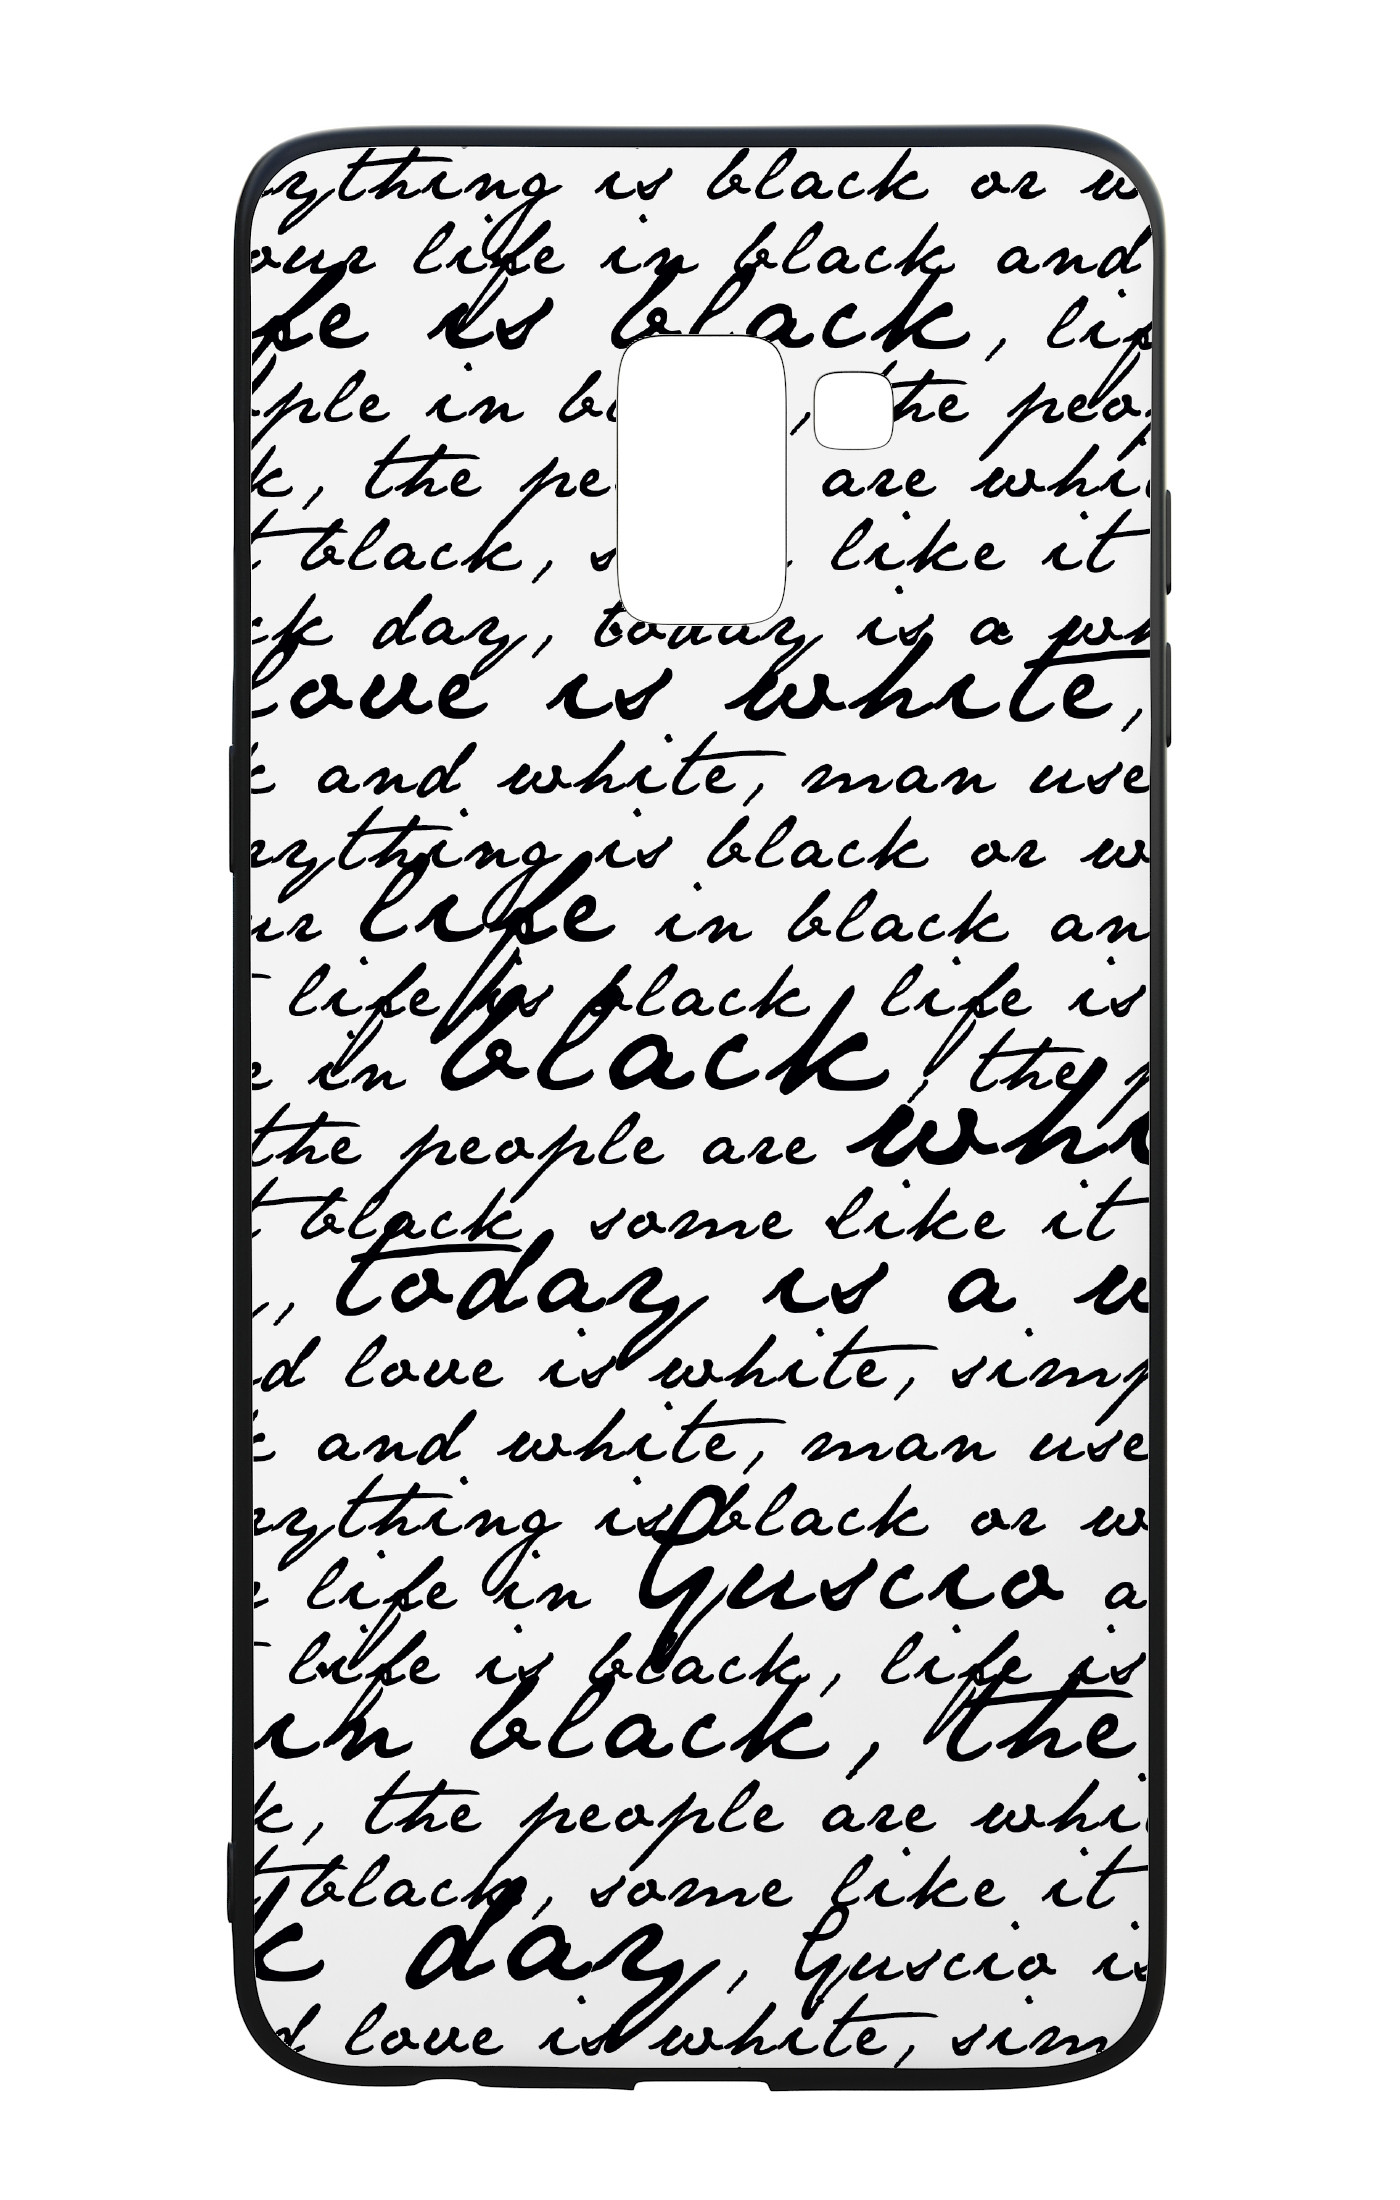 rything is black or w
our life in black and
fe is black, lif
ple in b , the peo
k, the pe are whi
t black, s like it
ck day, today is a wh
love is white,
k and white, man use
rything is black or w
ur life in black an
life is black life is
e in black, the p
the people are whi
t black, some like it
, today is a w
d love is white, simp
k and white, man use
rything is black or w
life in Guscio a
life is black, life is
in black, the
k, the people are whi
t black, some like it
k day, Guscio is
d love is white, sim